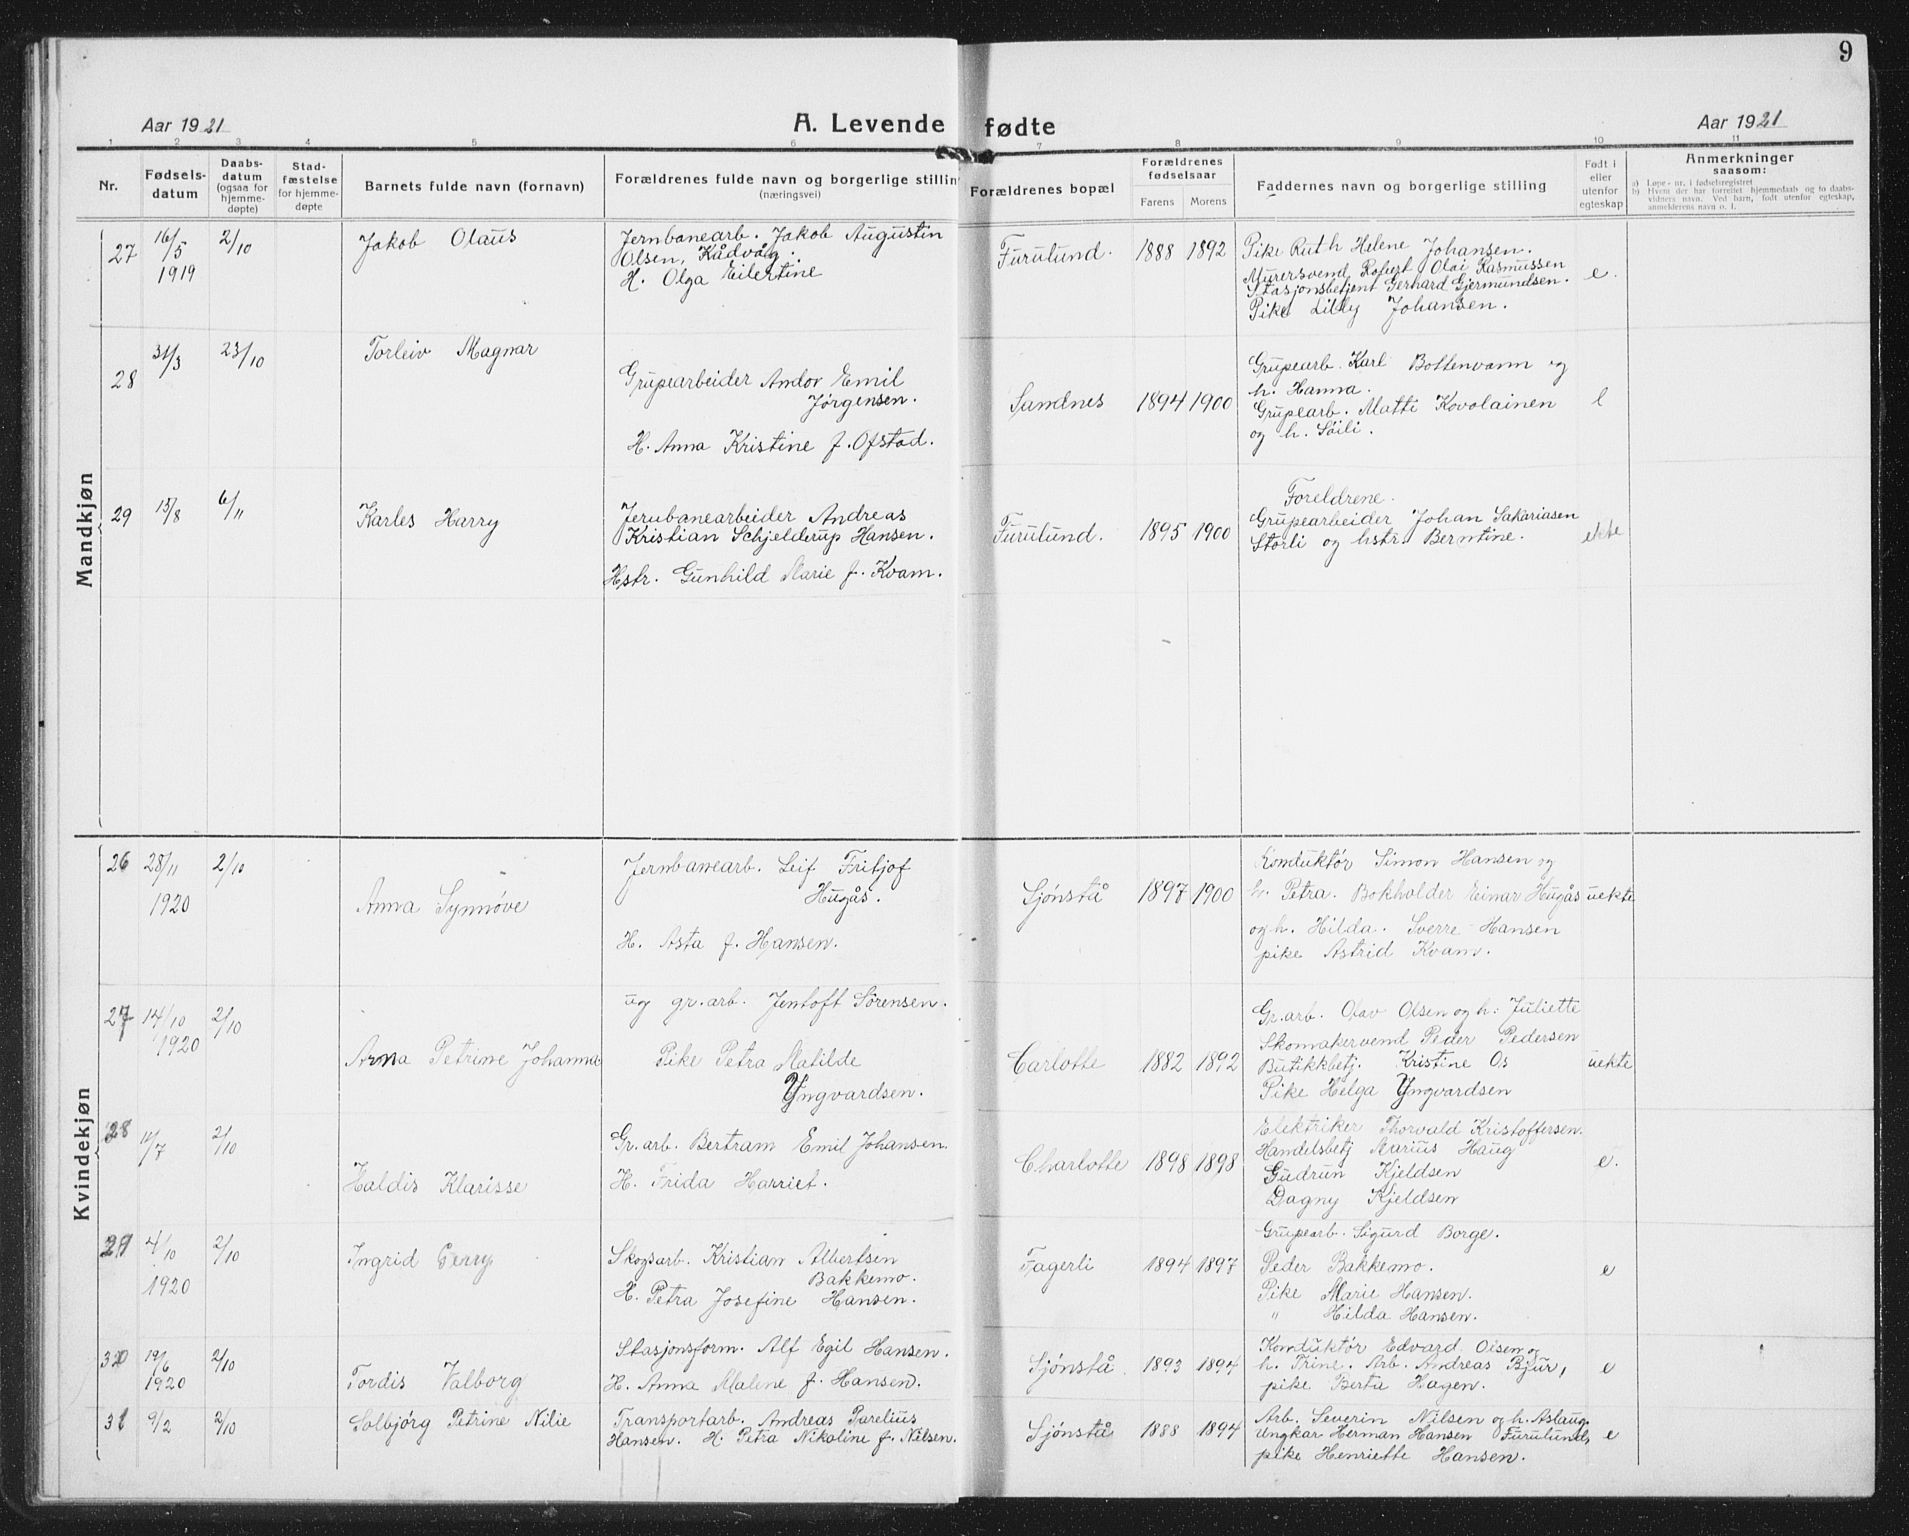 9
Aar 1921
A. Levende fødte
Aar 1921
1 2 3 4 5 6 7 8 9 10 11
Nr.
Fødsels-
datum
Daabs-
datum
(ogsaa for
hjemme-
døpte)
Stad-
fæstelse
for hjemme-
døpte
Barnets fulde navn (fornavn)
Forældrenes fulde navn og borgerlige stilling
(næringsvei)
Forældrenes bopæl
Forældrenes
fødselsaar
Farens Morens
Faddernes navn og borgerlige stilling
Født i
eller
utenfor
egteskap
Anmerkninger
saasom:
a) Løpe-nr. i fødselsregistret
b) Hvem der har forrettet hjemmedaab og to daabs-
vidners navn. Ved barn, født utenfor egteskap,
anmelderens navn o. l.
Mandkjøn
27
16/5
1919
2/10
Jakob Olaus
Jernbanearb. Jakob Augustin
Olsen, Kådvåg.
H. Olga Eilertine
Furulund.
1888 1892
Pike Ruth Helene Johansen.
Murersvend Robert Olai Rasmussen
Stasjonsbetjent Gerhard Gjermundsen.
Pike Lilly Johansen.
e.
28
31/3
23/10
Torleiv Magnar
Grupearbeider Andor Emil
Jørgensen.
H. Anna Kristine f. Ofstad.
Sandnes
1894 1900
Grupearb. Karl Bottenvann og
h. Hanna.
Grupearb. Matti Kovolainen
og h. Söili.
e
29
15/8
6/11
Karles Harry
Jernbanearbeider Andreas
Kristian Schjelderup Hansen.
Hstr. Gunhild Marie f. Kvam.
Furulund.
1895 1900
Foreldrene.
Grupearbeider Johan Sakariasen
Storli og hstr. Berntine.
ekte
Kvindekjøn
26
28/11
1920
2/10
Anna Synnøve
Jernbanearb. Leif Fritjof
Hugås.
H. Asta f. Hansen.
Sjönstå
1897 1900
Konduktör Simon Hansen og
h. Petra. Bokholder Einar Hugås
og h. Hilda. Sverre Hansen
pike Astrid Kvam.
uekte
27
14/10
1920
2/10
Arna Petrine Johanna
ug gr.arb. Jentoft Sørensen.
Pike Petra Matilde
Yngvardsen.
Carlotte
1882 1892
Gr.arb. Olav Olsen og h: Juliette
Skomakervend Peder Pedersen
Butikkbetj. Kristine Os
Pike Helga Yngvardsen
uekte
28
11/7
2/10
Haldis Klarisse
Gr.arb. Bertram Emil Johansen.
H. Frida Harriet.
Charlotte
1898 1898
Elektriker Thorvald Kristoffersen.
Handelsbetj Marius Haug
Gudrun Kjeldsen
Dagny Kjeldsen
e.
29
4/10
1920
2/10
Ingrid Gerry
Skogsarb. Kristian Albertsen
Bakkemo.
H. Petra Josefine Hansen.
Fagerli
1894 1897
Grupearb. Sigurd Borge.
Peder Bakkemo.
Pike Marie Hansen.
" Hilda Hansen.
e
30
19/6
1920
2/10
Tordis Valborg
Stasjonsform. Alf Egil Hansen.
H. Anna Malene f. Hansen.
Sjönstå.
1893 1894
Konduktör Edvard Olsen og
h. Trine. Arb. Andreas Bjur,
pike Berta Hagen.
e
31
9/2
2/10
Solbjörg Petrine Nilie
Transportarb. Andreas Parelius
Hansen. H. Petra Nikoline f. Nilsen.
Sjönstå
1888 1894
Arb. Severin Nilsen og h. Aslaug.
Ungkar Herman Hansen Furulund,
pike Henriette Hansen.
e